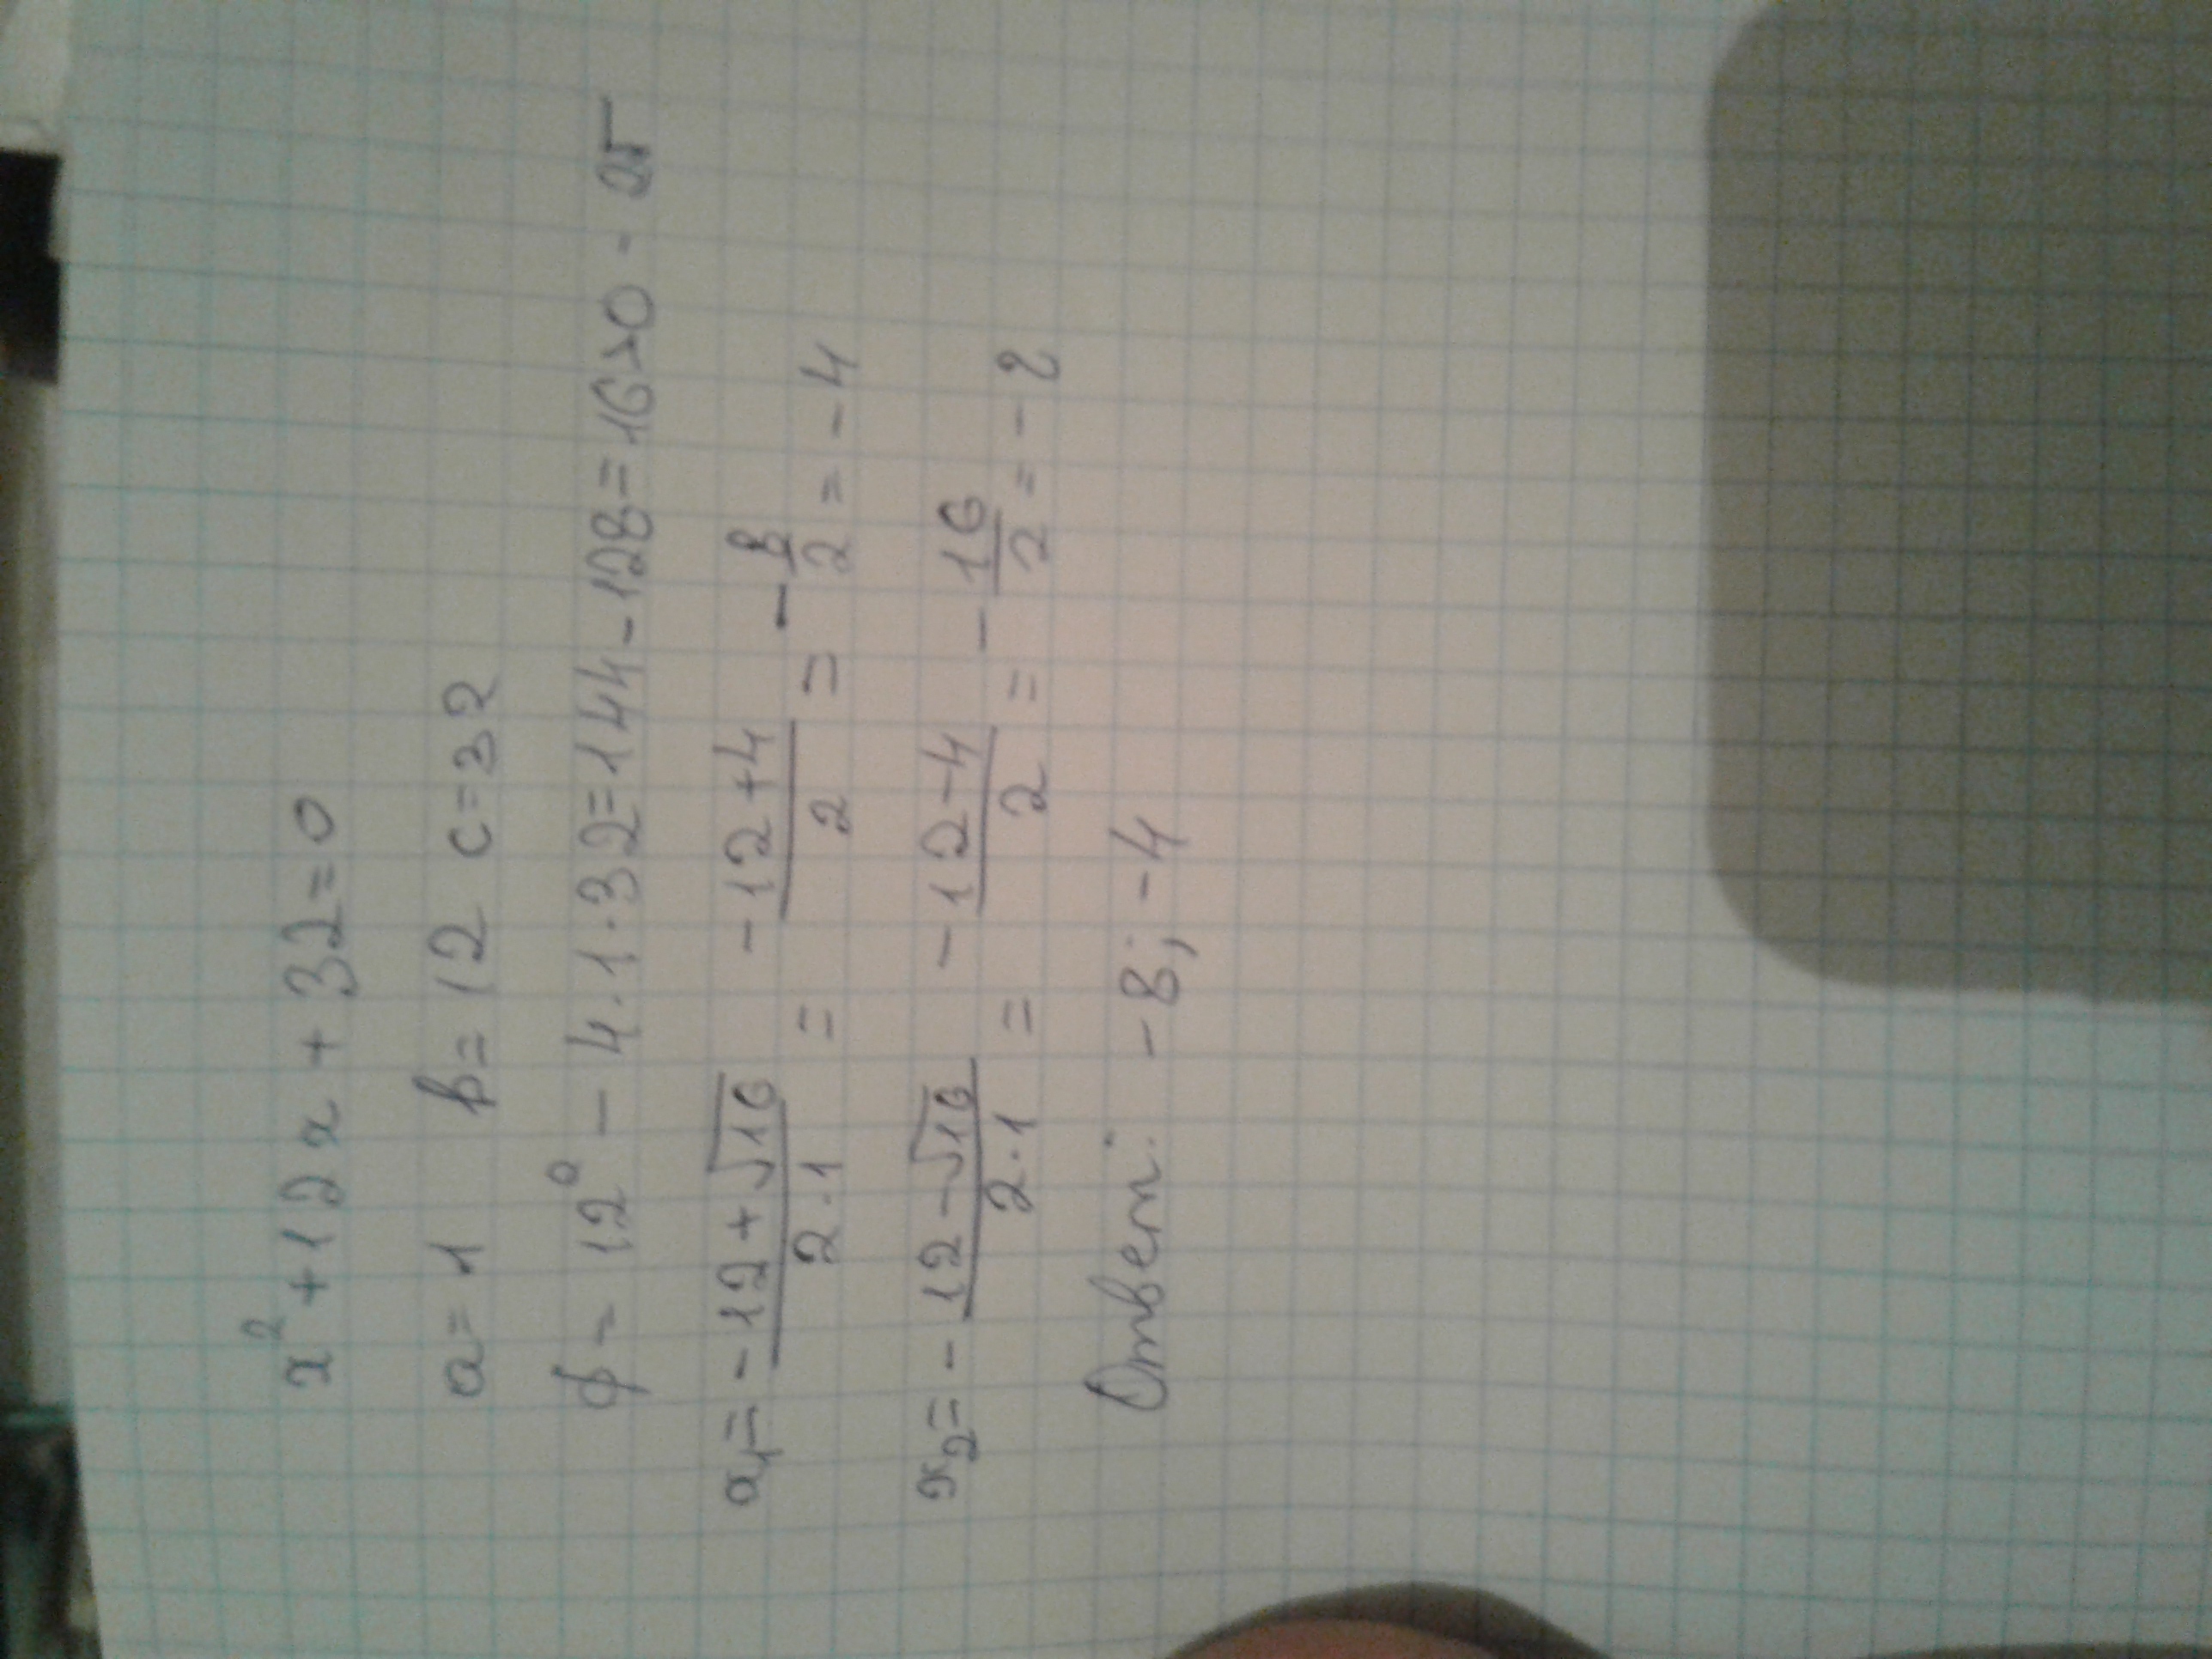 x² + 12x + 32 = 0
a = 1 b = 12 c = 32
D = 12² - 4·1·32 = 144 - 128 = 16 > 0 - 2т
x₁ = -12 + √16 / 2·1 = -12 + 4 / 2 = - 8/2 = -4
x₂ = -12 - √16 / 2·1 = -12 - 4 / 2 = - 16/2 = -2
Ответ: -8; -4